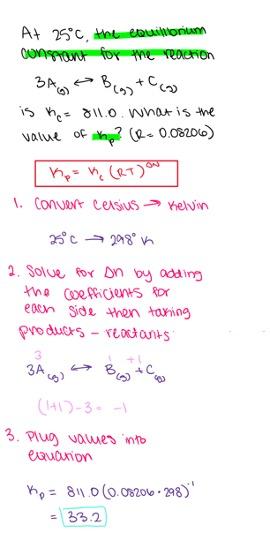 At 25°C, the equilibrium
constant for the reaction
3A(g) ↔ B(g) + C(g)
is Kc = 811.0. What is the
value of Kp? (R= 0.08206)
Kp = Kc (RT)^Δn
1. Convert Celsius → Kelvin
25°C → 298° K
2. Solve for Δn by adding
the coefficients for
each side then taking
products - reactants
3 1 +1
3A(g) ↔ B(g) + C(g)
(1+1)-3 = -1
3. Plug values into
equation
Kp = 811.0 (0.08206·298)^-1
= 33.2